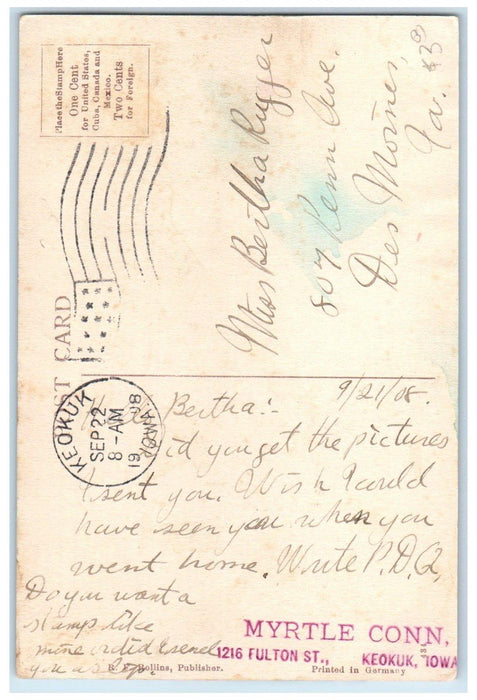 Place the Stamp Here
One Cent
for United States,
Cuba, Canada and
Mexico.
Two Cents
for Foreign.
POST CARD
KEOKUK
SEP 22
8-AM
1908
IOWA
Miss Bertha Rugger
807 Penn Ave.
Des Moines,
Ia.
9/21/08.
Bertha:-
did you get the pictures
I sent you. Wish I could
have seen you when you
went home. Write P.D.Q.
Do you want a
stamp like
mine
you
MYRTLE CONN,
1216 FULTON ST., KEOKUK, IOWA
Bollins, Publisher. Printed in Germany